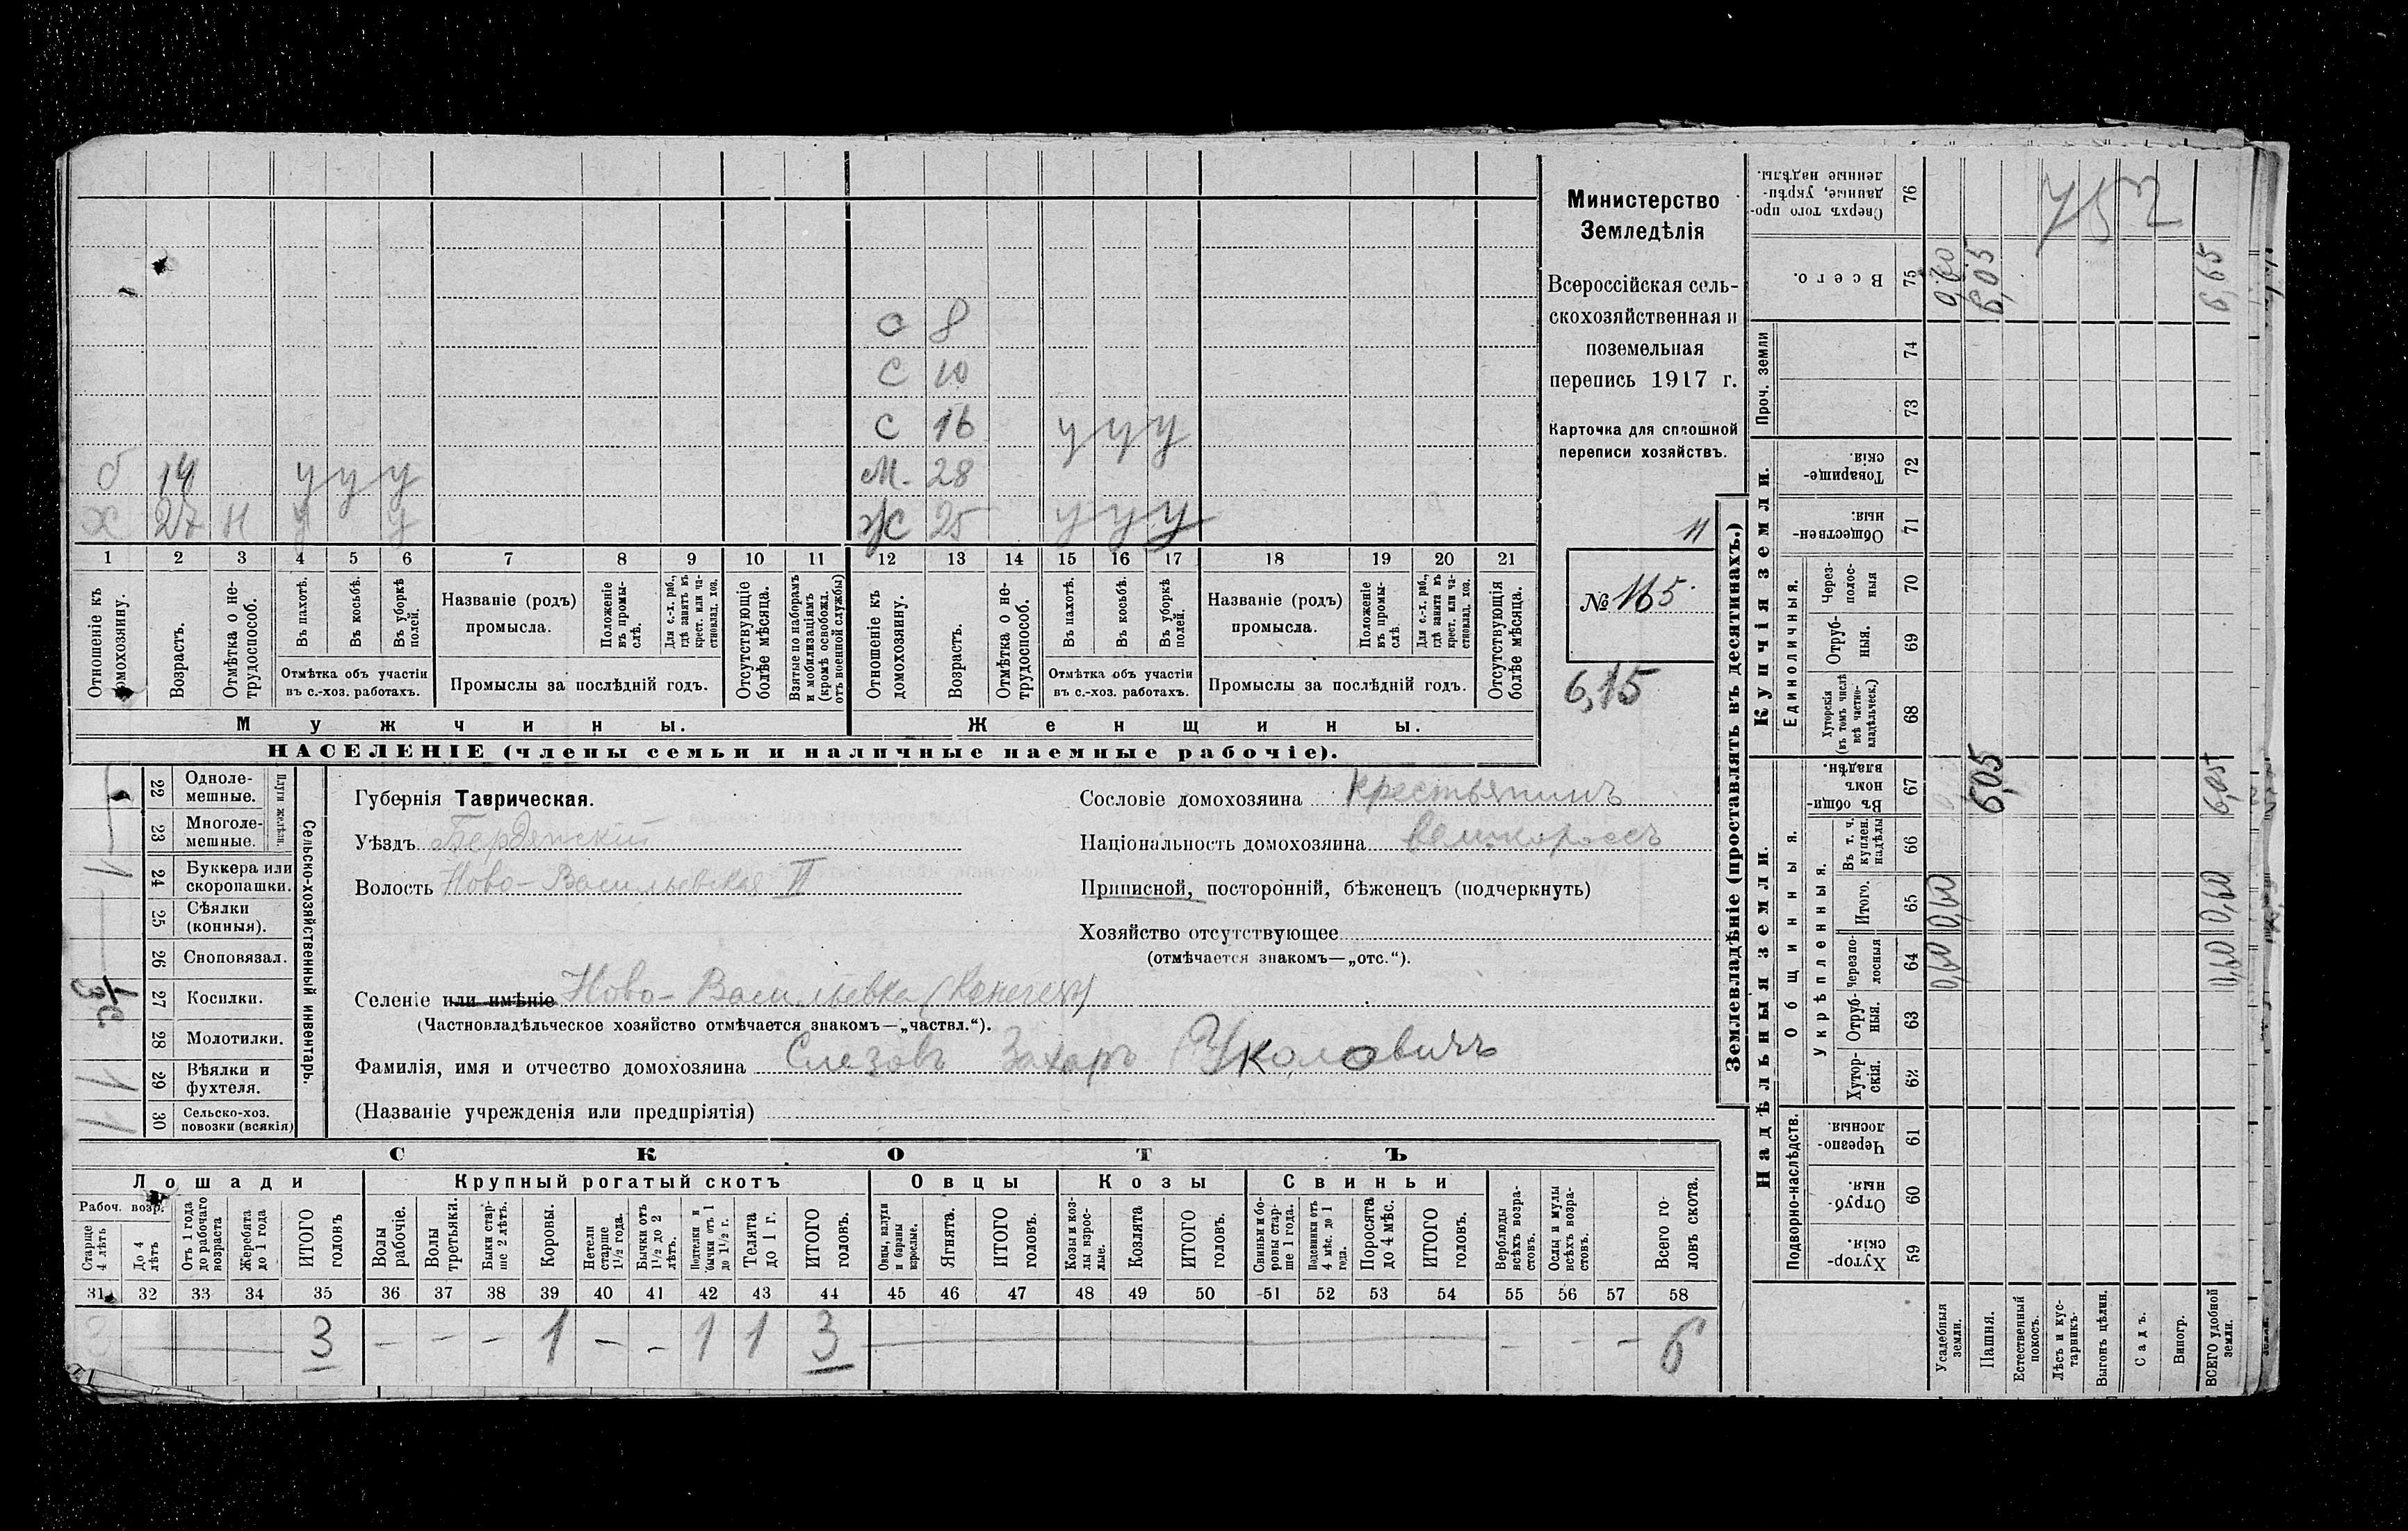 Министерство
Земледѣлія
Всероссійская сель-
скохозяйственная и
поземельная
перепись 1917 г.
Карточка для сплошной
переписи хозяйствъ.
11
№ 165
6,15
О 8
С 10
С 16 у у у
б 14 у у у М. 28
Х 27 Н у у Ж 25 у у у
1 2 3 4 5 6 7 8 9 10 11 12 13 14 15 16 17 18 19 20 21
Отношеніе къ домохозяину.
Возрастъ.
Отмѣтка о не-трудоспособ.
Въ пахотѣ.
Въ косьбѣ.
Въ уборкѣ полей.
Отмѣтка объ участіи
въ с.-хоз. работахъ.
Названіе (родъ)
промысла.
Положеніе въ промы-слѣ.
Для с.-х. раб., гдѣ занятъ въ крест. или ча-стновлад. хоз.
Промыслы за послѣдній годъ.
Отсутствующіе болѣе мѣсяца.
Взятые по наборамъ и мобилизаціямъ (кромѣ освобожд. отъ военной службы)
Отношеніе къ домохозяину.
Возрастъ.
Отмѣтка о не-трудоспособ.
Въ пахотѣ.
Въ косьбѣ.
Въ уборкѣ полей.
Отмѣтка объ участіи
въ с.-хоз. работахъ.
Названіе (родъ)
промысла.
Положеніе въ промы-слѣ.
Для с.-х. раб., гдѣ занята въ крест. или ча-стновлад. хоз.
Промыслы за послѣдній годъ.
Отсутствующія болѣе мѣсяца.
Мужчины.
Женщины.
НАСЕЛЕНІЕ (члены семьи и наличные наемные рабочіе).
Сельско-хозяйственный инвентарь.
Плуги желѣзн.
22 Одноле-мешные.
23 Многоле-мешные.
1 24 Буккера или скоропашки.
25 Сѣялки (конныя).
26 Сноповязал.
27 Косилки.
28 Молотилки.
1 29 Вѣялки и фухтеля.
1 30 Сельско-хоз. повозки (всякія)
Губернія Таврическая.
Уѣздъ Бердянскій
Волость Ново-Васильевская II
Сословіе домохозяина крестьянинъ
Національность домохозяина великороссъ
Приписной, посторонній, бѣженецъ (подчеркнуть)
Хозяйство отсутствующее
(отмѣчается знакомъ—„отс.“).
Селеніе или имѣніе Ново-Васильевка
(Частновладѣльческое хозяйство отмѣчается знакомъ—„частвл.“).
Фамилія, имя и отчество домохозяина Слезовъ Захаръ Уколовичъ
(Названіе учрежденія или предпріятія)
СКОТЪ
Лошади
Крупный рогатый скотъ
Овцы
Козы
Свиньи
Рабоч. возр.
Старше 4 лѣтъ
До 4 лѣтъ
Отъ 1 года до рабочаго возраста
Жеребята до 1 года
ИТОГО головъ
Волы рабочіе.
Волы третьяки.
Быки стар-ше 2 лѣтъ.
Коровы.
Нетели старше 1½ года.
Бычки отъ 1½ до 2 лѣтъ.
Подтелки и бычки отъ 1 до 1½ г.
Телята до 1 г.
ИТОГО головъ.
Овцы, валухи и бараны взрослые.
Ягнята.
ИТОГО головъ.
Козы и коз-лы взрос-лые.
Козлята
ИТОГО головъ.
Свиньи и бо-ровы стар-ше 1 года.
Подсвинки отъ 4 мѣс. до 1 года.
Поросята до 4 мѣс.
ИТОГО головъ.
Верблюды всѣхъ возра-стовъ.
Ослы и мулы всѣхъ возра-стовъ.
Всего го-ловъ скота.
31 32 33 34 35 36 37 38 39 40 41 42 43 44 45 46 47 48 49 50 51 52 53 54 55 56 57 58
3 — — — 1 — — 1 1 3 — — — 6
Землевладѣніе (проставлять въ десятинахъ.)
Надѣльныя земли.
Купчія земли.
Проч. земли
Подворно-наслѣдств.
Общинныя.
Укрѣпленныя.
Единоличныя.
Хутор-скія. 59
Отруб-ныя. 60
Черезпо-лосныя. 61
Хутор-скія. 62
Отруб-ныя. 63
черезпо-лосныя 64 0,60 0,60
Итого. 65 0,60 0,60
Въ т. ч. куплен. надѣлы 66
Въ общи-номъ владѣн. 67 6,05 6,05
Хуторскія (въ томъ числѣ всѣ частно-владѣльческ.) 68
Отруб-ныя. 69
Через-полос-ныя 70
Обществен-ныя. 71
Товарище-скія. 72
73
74
Всего. 75 0,60 6,05 6,65
Сверхъ того про-данные, укрѣп-ленные надѣлы. 76
752
Усадебныя земли.
Пашня.
Естественный покосъ.
Лѣсъ и кус-тарникъ.
Выгонъ цѣлин.
Садъ.
Виногр.
ВСЕГО удобной земли.